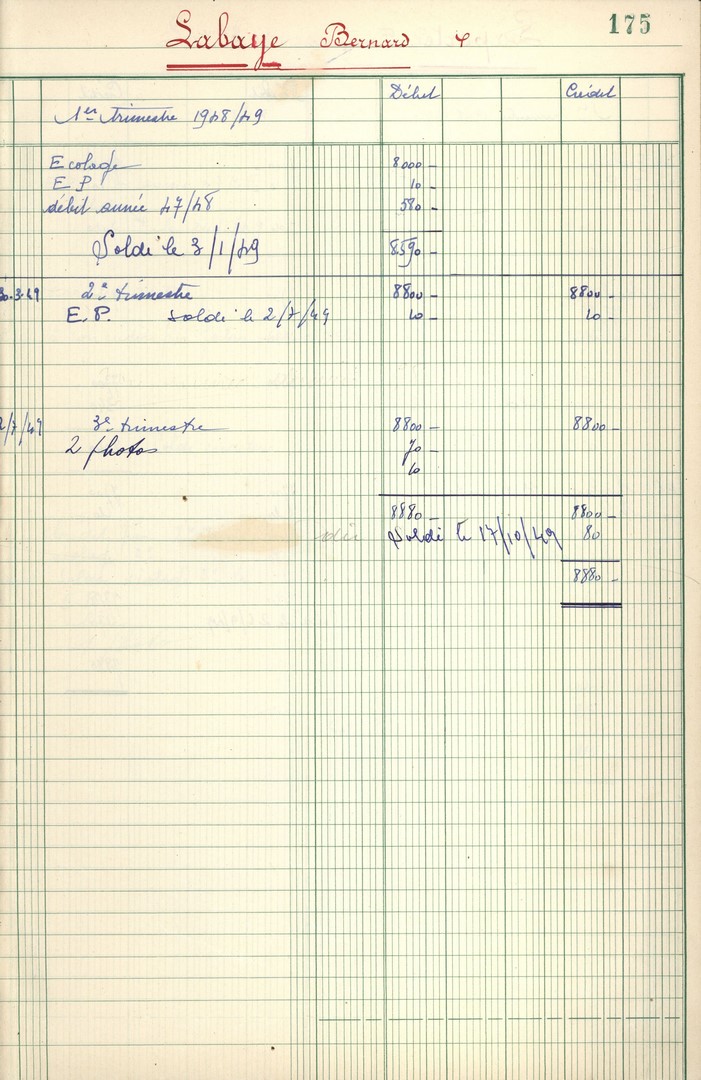 175
Labaye Bernard 4
Débit Crédit
1er trimestre 1948/49
Ecolage 8000 -
E P 10 -
débit année 47/48 580 -
Soldé le 3/1/49 8590 -
30.3.49 2e trimestre 8800 - 8800 -
E.P. soldé le 2/7/49 10 - 10 -
2/7/49 3e trimestre 8800 - 8800 -
2 photos 70 -
10
8880 - 8800 -
dû Soldé le 17/10/49 80
8880 -